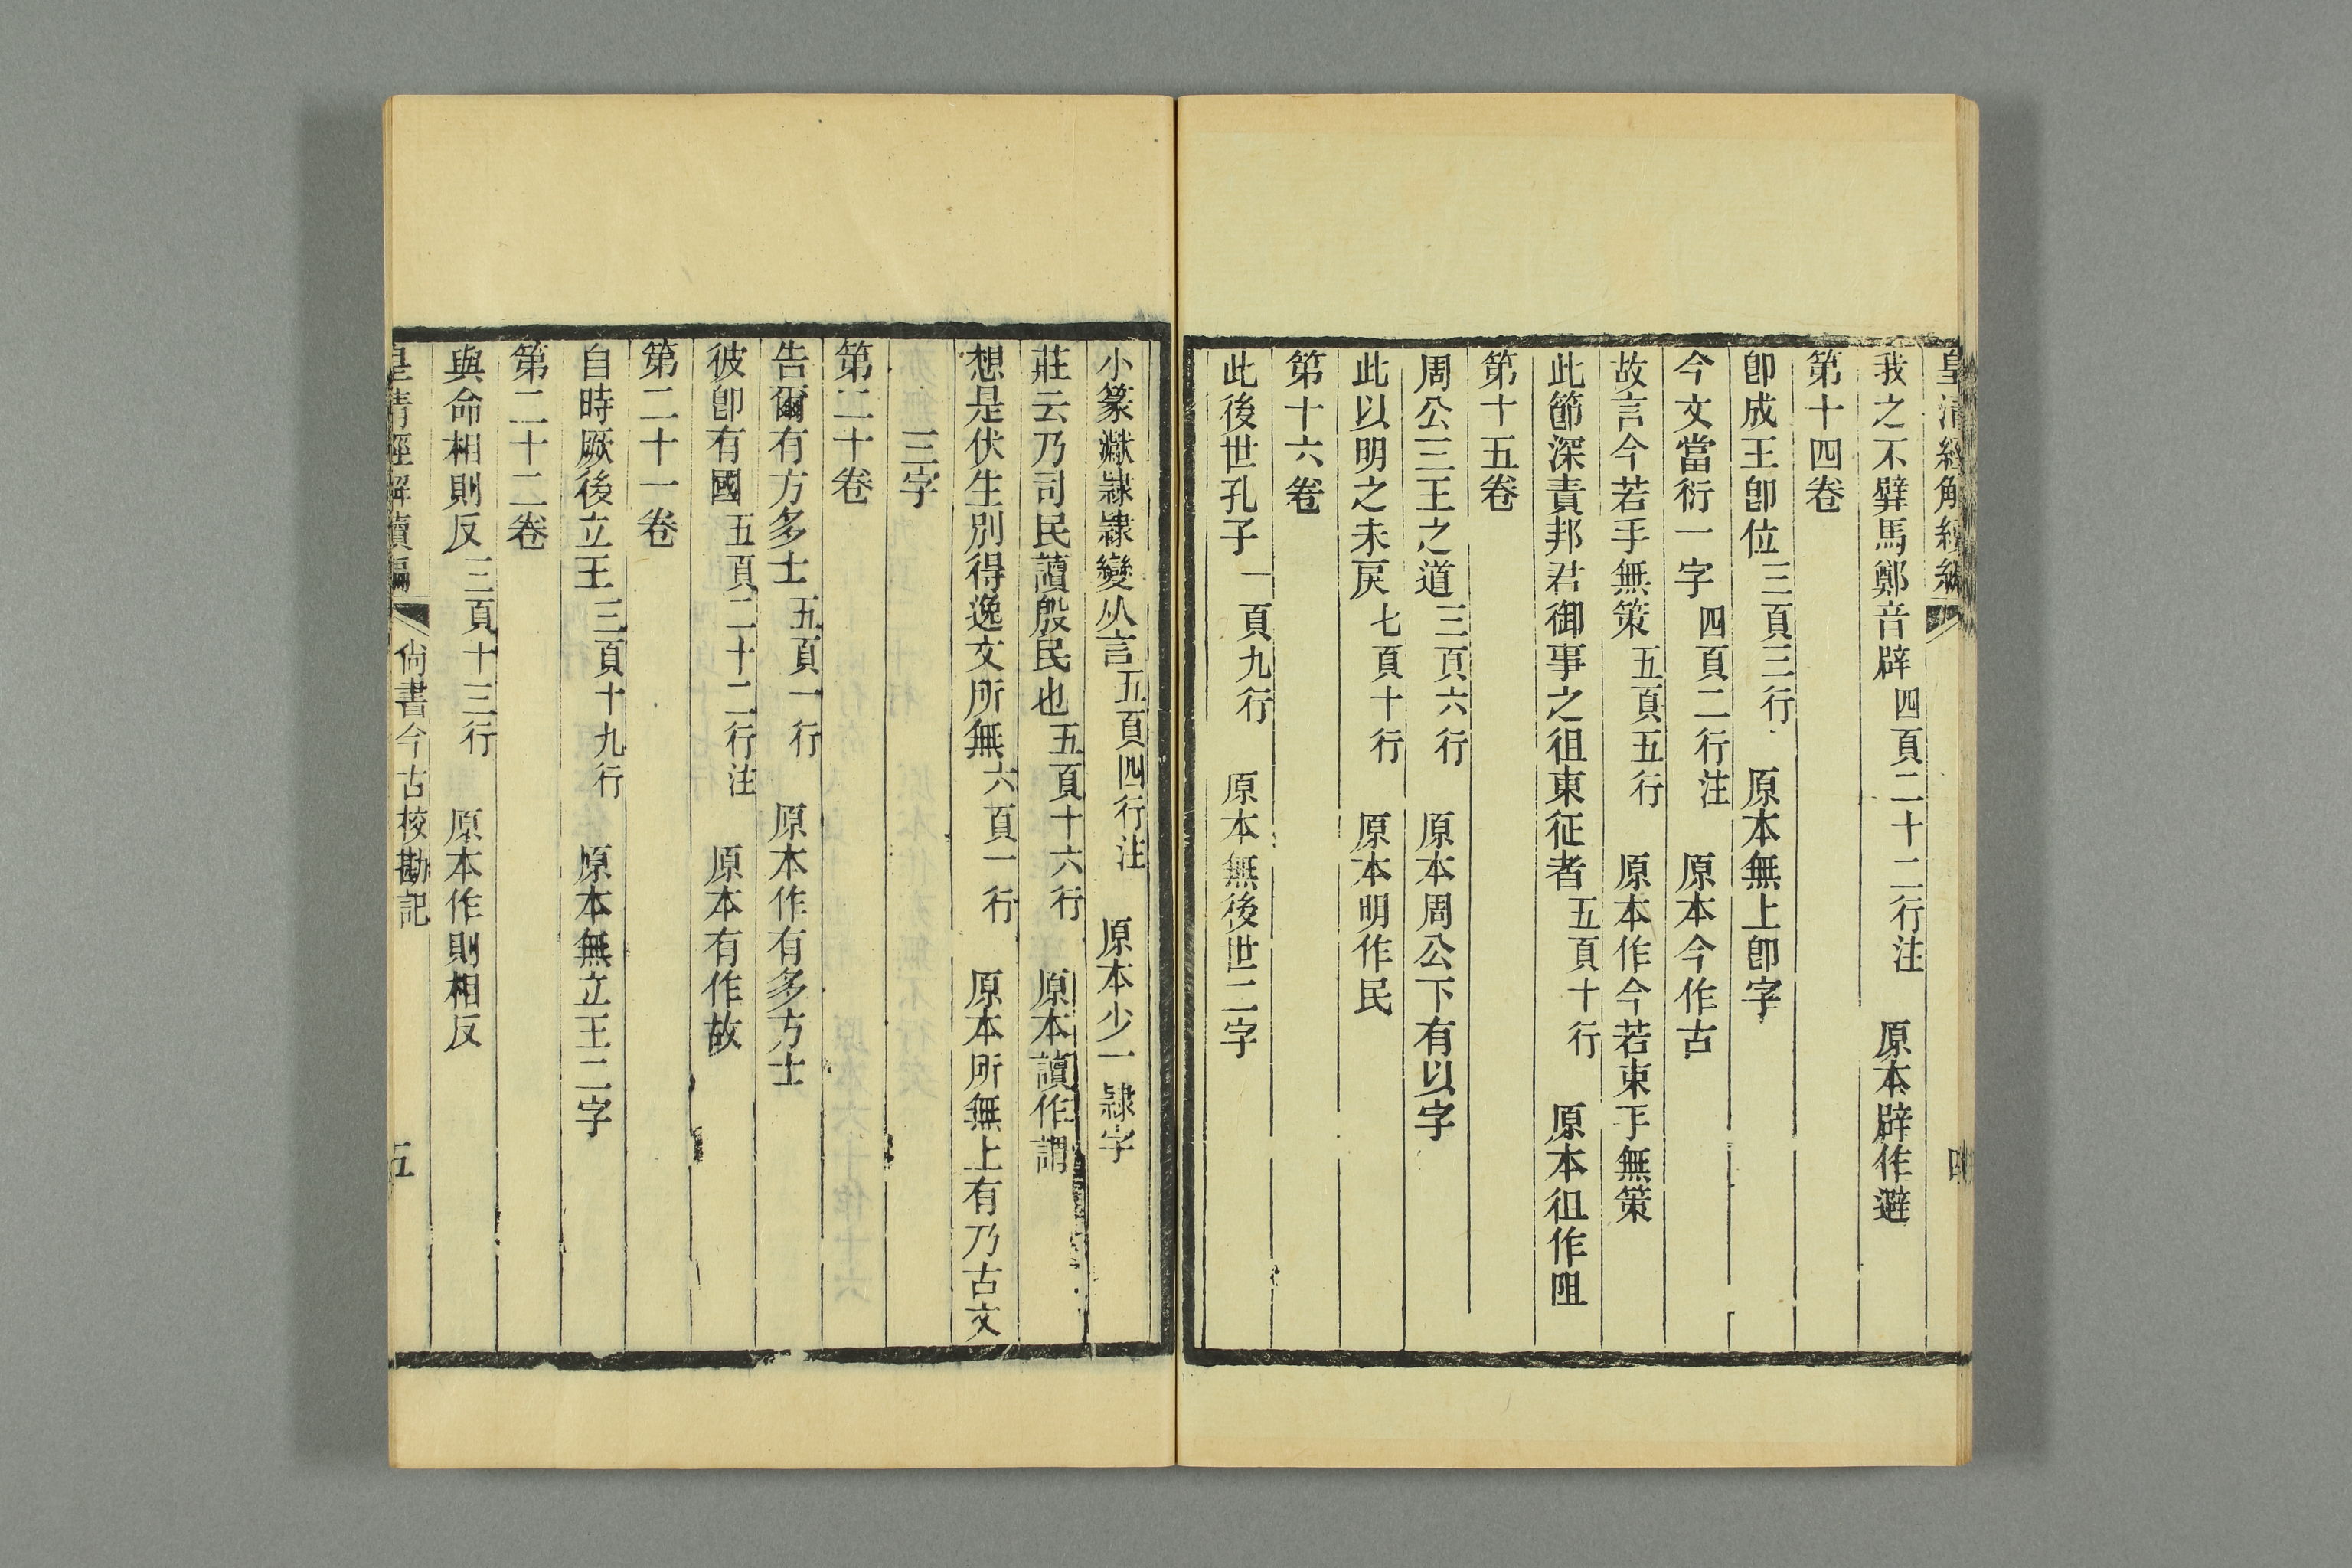 皇清經解續編 四
我之不辟馬鄭音辟四頁二十二行注 原本辟作避
第十四卷
卽成王卽位三頁三行 原本無上卽字
今文當衍一字四頁二行注 原本今作古
故言今若手無策五頁五行 原本作今若束手無策
此節深責邦君御事之徂東征者五頁十行 原本徂作阻
第十五卷
周公三王之道三頁六行 原本周公下有以字
此以明之未戾七頁十行 原本明作民
第十六卷
此後世孔子一頁九行 原本無後世二字
小篆嶽隸隸變从言五頁四行注 原本少一隸字
莊云乃司民讀殷民也五頁十六行 原本讀作謂
想是伏生別得逸文所無六頁一行 原本所無上有乃古文
三字
第二十卷
告爾有方多士五頁一行 原本作有多方士
彼卽有國五頁二十二行注 原本有作故
第二十一卷
自時厥後立王三頁十九行 原本無立王二字
第二十二卷
與命相則反三頁十三行 原本作則相反
皇清經解續編 尙書今古校勘記 五